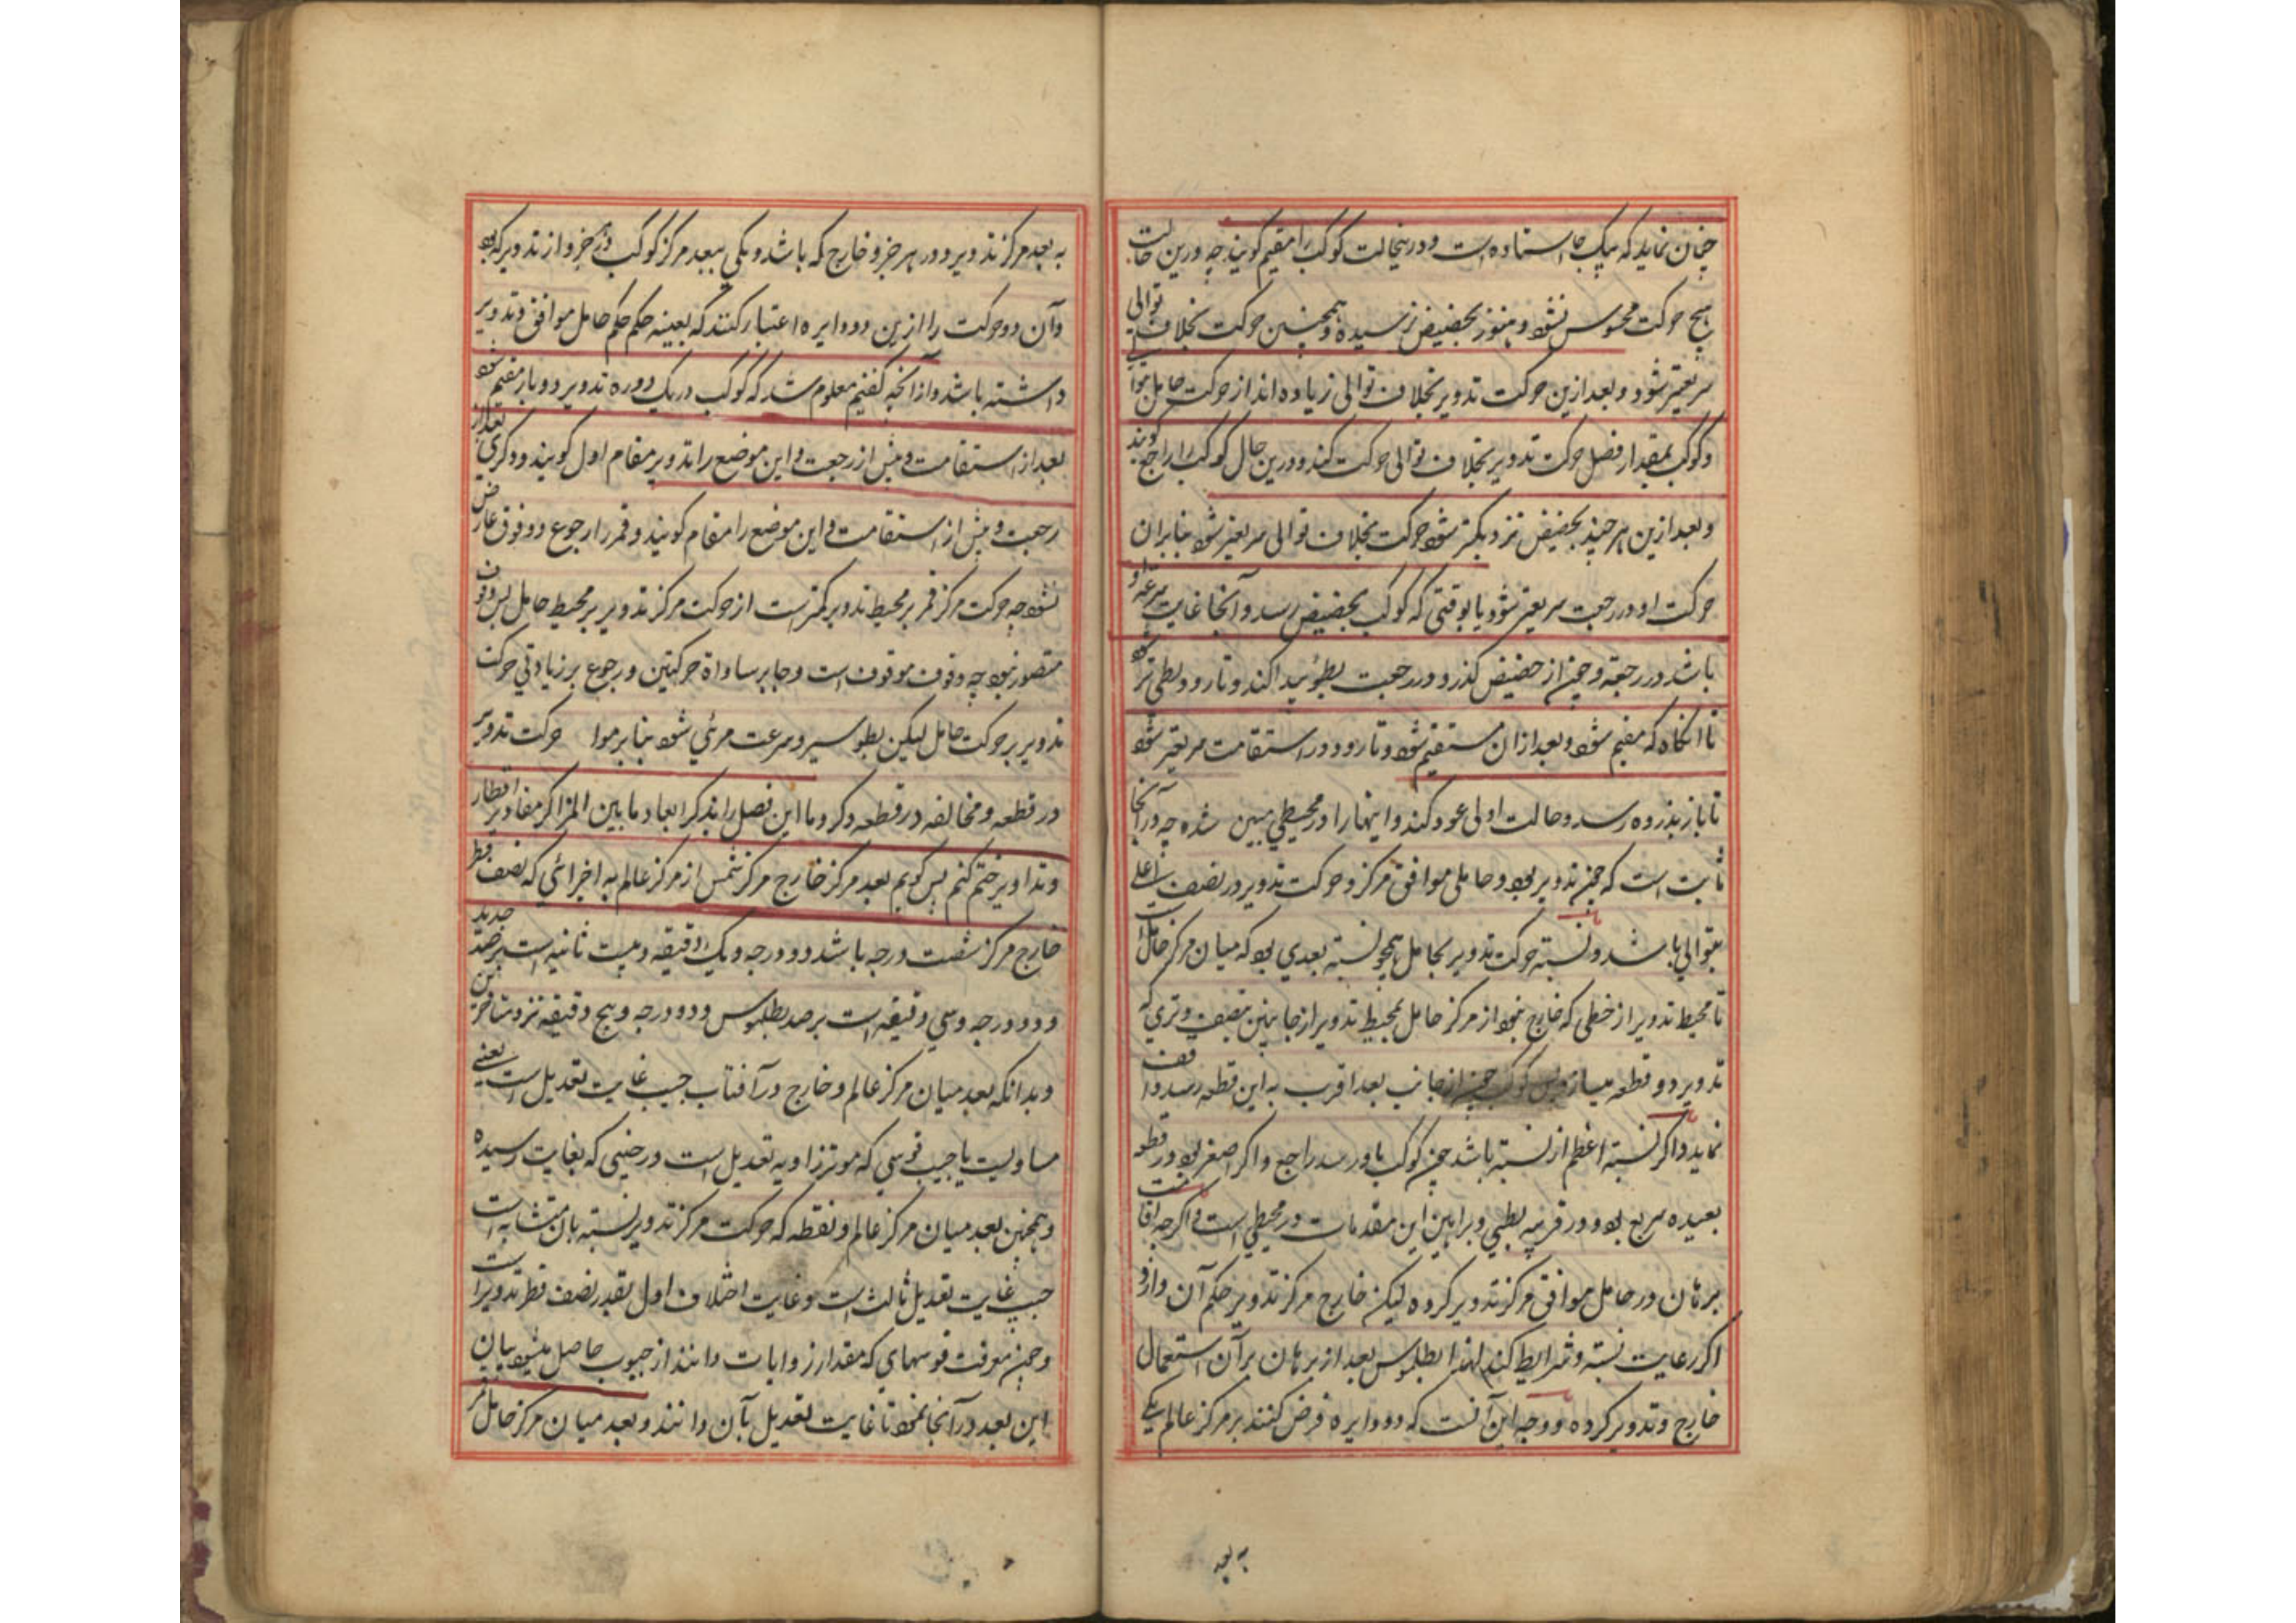 چنان نماید که بیک جا استاده است و در ینحالت کوکب را مقیم کویند چه درین حالت
هیچ حرکت محسوس نشود و هنوز بحضیض نرسیده و همچنین حرکت بخلاف توالی
سریعتر شود و بعد ازین حرکت تدویر بخلاف توالی زیاده اند از حرکت حامل
و کوکب بمقدار فضل حرکت تدویر بخلاف توالی حرکت کند و درین حال کوکب را راجع کویند
و بعد ازین هر چند بحضیض نزدیکتر شود حرکت بخلاف توالی سریعتر شود بنابران
حرکت او در رجعت سریعتر شود یا بوقتی که کوکب بحضیض رسد و آنجا غایت سرعة او
باشد در رجعة و چون از حضیض کذرد در رجعت بطوء پیدا کند و تا رود بطی تر شود
تا آنکاه که مقیم شود و بعد ازان مستقیم شود و تا رود در استقامت سریعتر شود
تا باز بذروه رسد و حالت اولی عود کند و اینها را در محیطی مبین شده چه در آنجا
ثابت است که چون تدویر بود و حاملی موافق مرکز و حرکت تدویر در نصف اعلی
بتوالی باشد و نسبة حرکت تدویر بحامل همچو نسبة بعدی بود که میان مرکز حامل است
تا محیط تدویر از خطی که خارج شود از مرکز حامل بمحیط تدویر از جانبین بنصف وتری که
تدویر دو قطعه میسازد پس کوکب چون از جانب بعد اقرب به این قطعه رسد واقف
نماید و اکر نسبة اعظم از نسبة باشد چون کوکب باو رسد راجع و اکر اصغر بود در قطعه
بعیده سریع بود و در قریبه بطیی و براهین این مقدمات در محیطی است و اکرچه اقامت
برهان در حامل موافق مرکز تدویر کرده لیکن خارج مرکز تدویر حکم آن دارد
اکر رعایت نسبة و شرایط کند لهذا بطلمیوس بعد از برهان بر آن استعمال
خارج و تدویر کرده و وجه این آنست که دو دایره فرض کنند بر مرکز عالم یکی
به بعد
به بعد مرکز تدویر در هر جزو خارج که باشد و یکی ببعد مرکز کوکب در هر جزو از تدویر که بود
و آن دو حرکت را ازین دو دایره اعتبار کنند که بعینه حکم حکم حامل موافق و تدویر
داشته باشد و از آنچه کفتیم معلوم شد که کوکب در یک دوره تدویر دو بار مقیم شود
بعد از استقامت و پیش از رجعت و این موضع را تدویر مقام اول کویند و دکری بعد از
رجعت و پیش از استقامت و این موضع را مقام کویند و قمر را رجوع و وقوف عارض
نشود چه حرکت مرکز قمر بر محیط تدویر کمتر است از حرکت مرکز تدویر بر محیط حامل پس وقوف
متصور نبود چه وقوف موقوف است و جا بر مساواة حرکتین و رجوع بر زیادتی حرکت
تدویر بر حرکت حامل لیکن بطو سیر و سرعت مرئی شود بنابر موا حرکت تدویر
در قطعه و مخالفه در قطعه دکر و ما این فصل را بذکر ابعاد ما بین المراکز مقادیر اقطار
و تداویر ختم کنم پس کویم بعد مرکز خارج مرکز شمس از مرکز عالم به اجزائی که نصف قطر
خارج مرکز شصت درجه باشد دو درجه و یک دقیقه و بیست ثانیه است برصد جدید
و دو درجه و سی دقیقه است برصد بطلمیوس و دو درجه و پنج دقیقه نزد متاخرین
و بدانکه بعد میان مرکز عالم و خارج در آفتاب جیب غایت تعدیل است یعنی
مساویست با جیب قوسی که موتر زاویه تعدیل است در حینی که بغایت رسیده
و همچنین بعد میان مرکز عالم و نقطه که حرکت مرکز تدویر نسبة بان متشابه است
جیب غایت تعدیل ثالث است و غایت اختلاف اول بقدر نصف قطر تدویر است
و چون معرفت قوسهای که مقدار زوایات دانند از جیوب حاصل میشود بیان
این بعد در آنجا نمود تا غایت تعدیل بآن دانند و بعد میان مرکز حامل